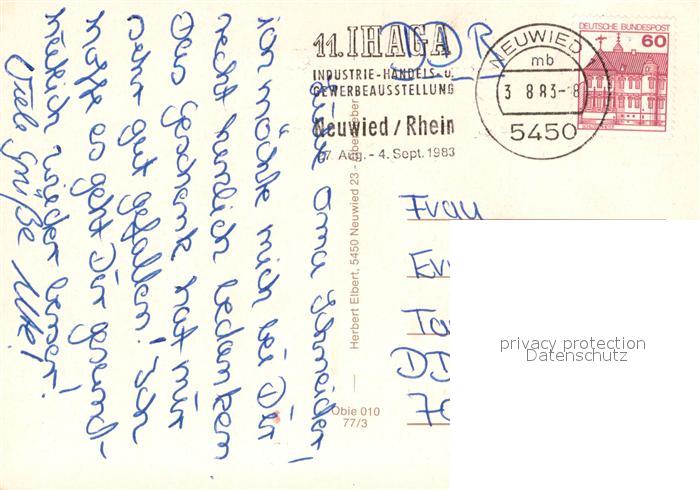 11. IHAGA
INDUSTRIE-HANDELS-U.
GEWERBEAUSSTELLUNG
Neuwied / Rhein
27. Aug. - 4. Sept. 1983
NEUWIED 1
mb
3. 8. 83 - 8
5450
DEUTSCHE BUNDESPOST
60
DDR
Liebe Oma Schneider!
ich möchte mich bei Dir
recht herzlich bedanken
Das Geschenk hat mir
sehr gut gefallen! Ich
hoffe es geht Dir gesund-
heitlich wieder besser!
Viele Grüße Uke!
Herbert Elbert, 5450 Neuwied 23 -
Obie 010
77/3
Frau
privacy protection
Datenschutz